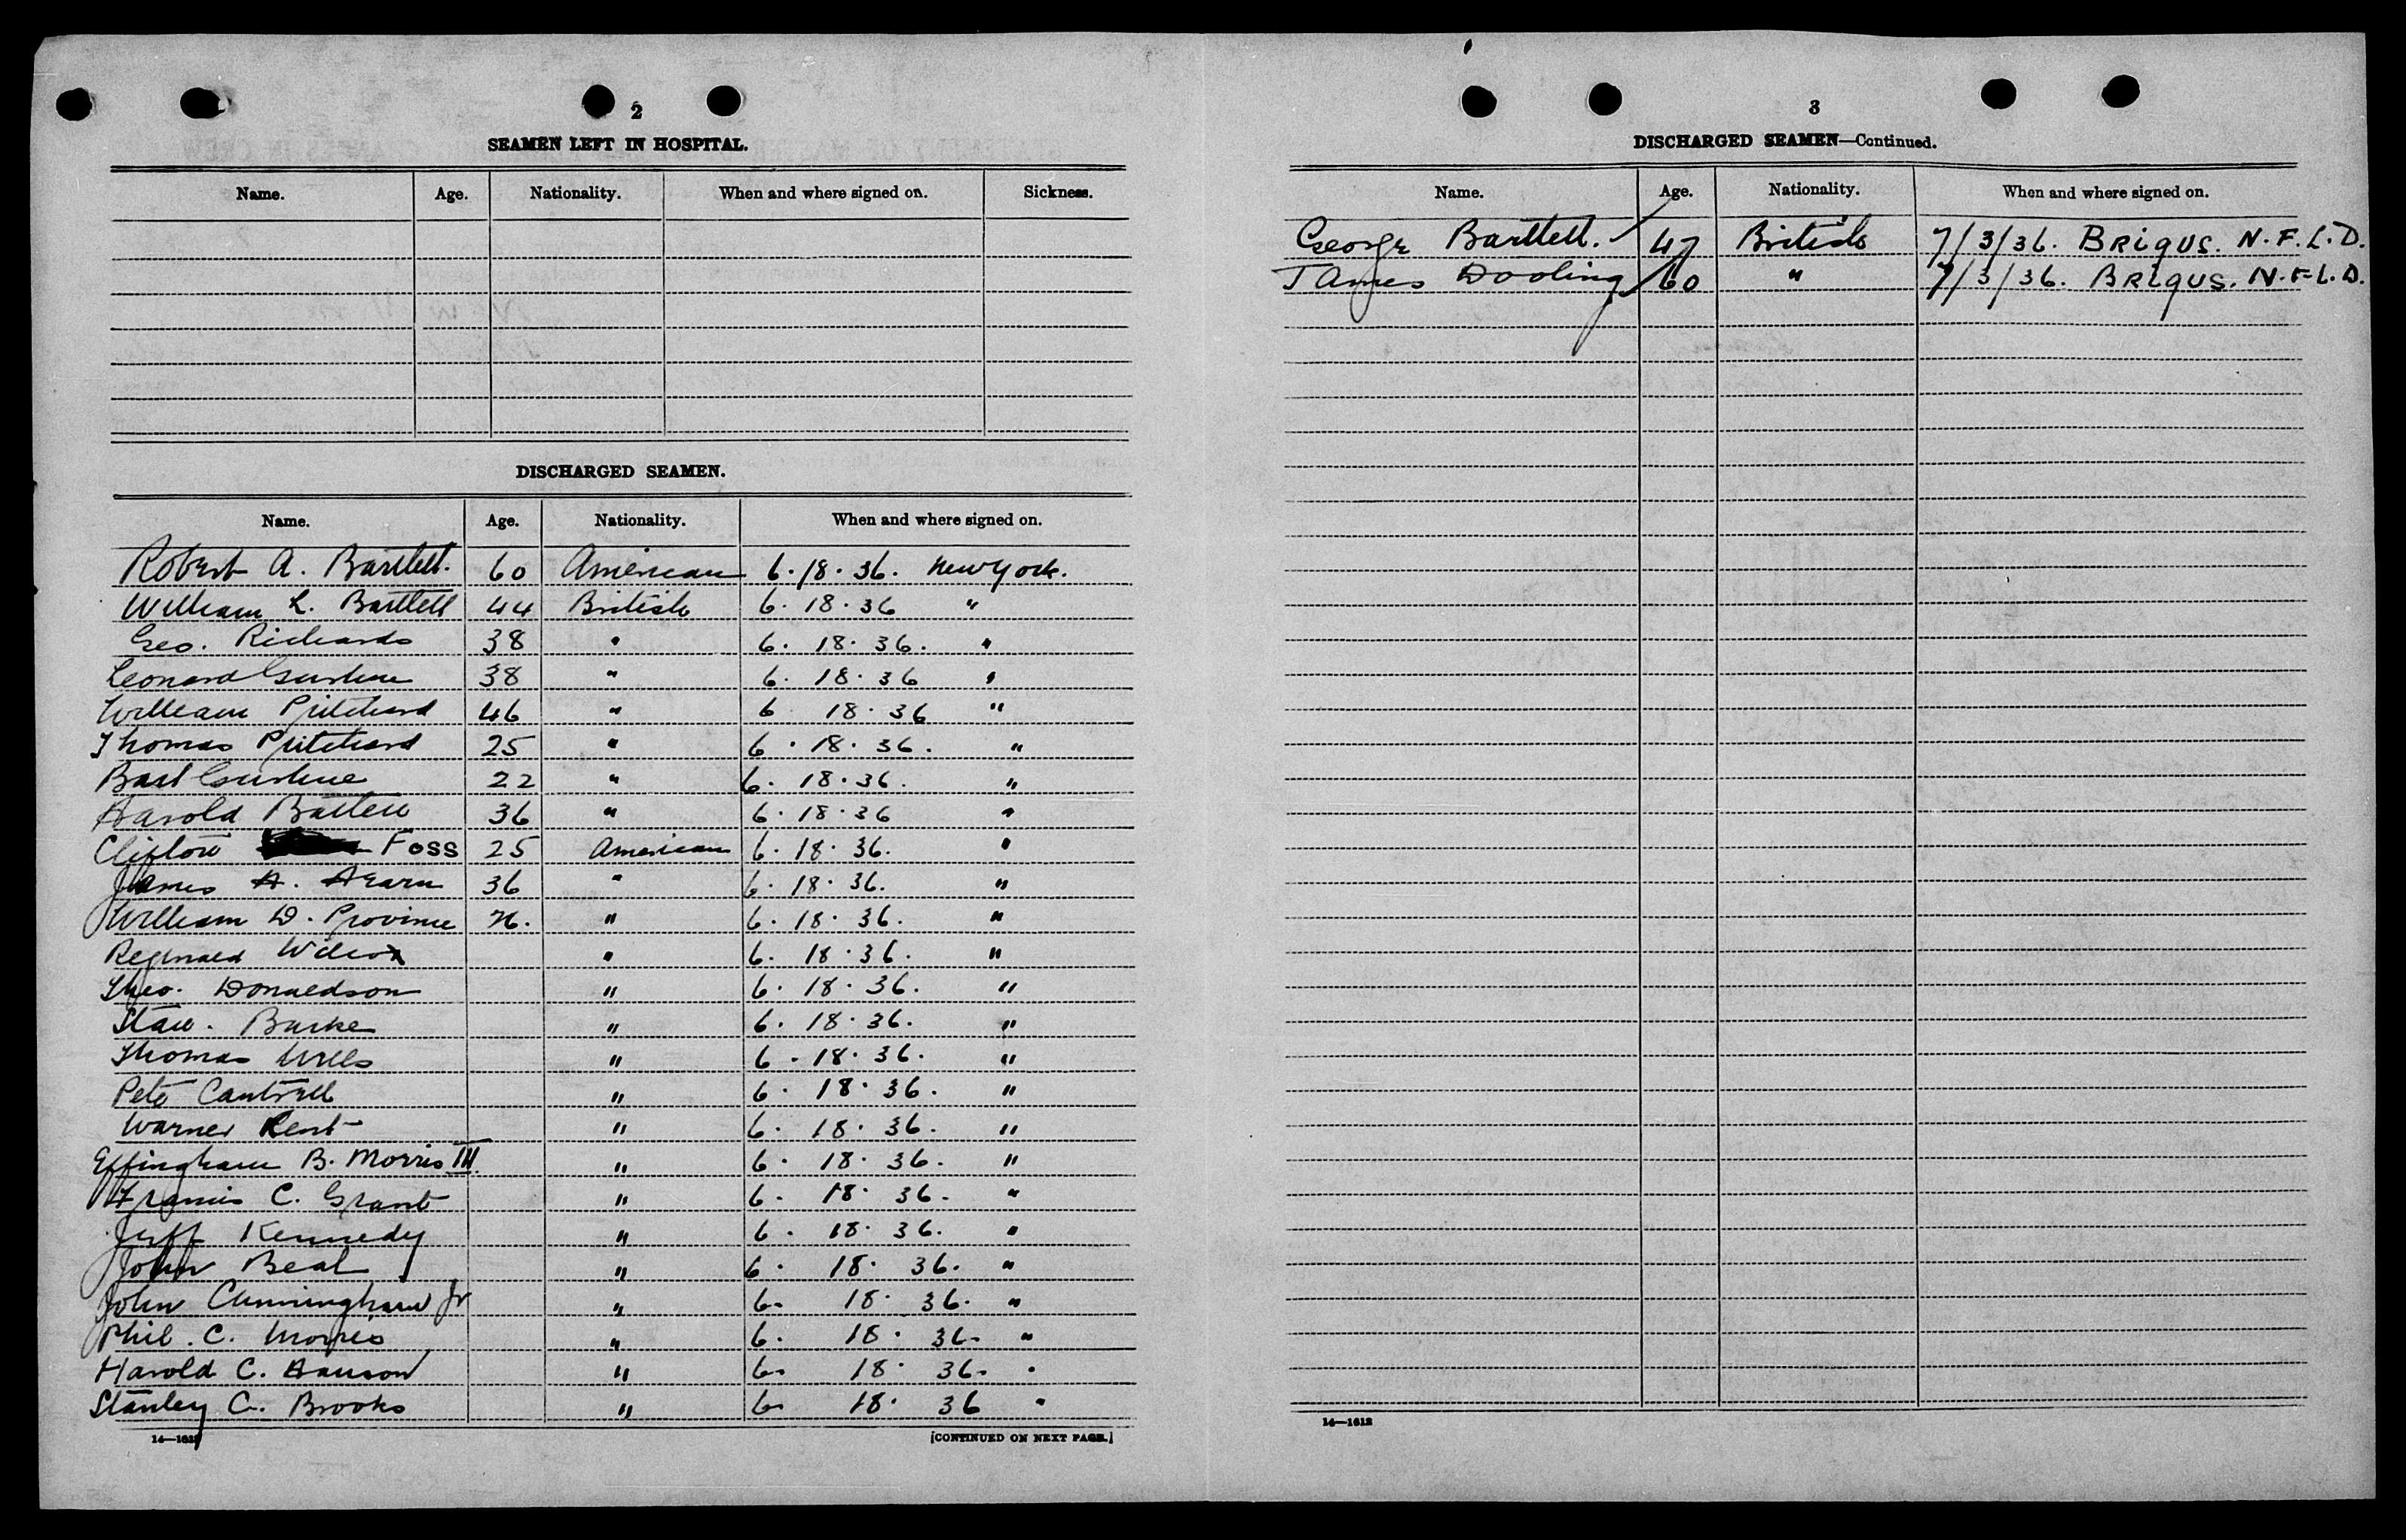 2
SEAMEN LEFT IN HOSPITAL.
Name. Age. Nationality. When and where signed on. Sickness.
DISCHARGED SEAMEN.
Name. Age. Nationality. When and where signed on.
Robert A. Bartlett. 60 American 6.18.36. New York.
William L. Bartlett 44 British 6.18.36 "
Geo. Richards 38 " 6.18.36. "
Leonard Gushue 38 " 6.18.36 "
William Pritchard 46 " 6 18.36 "
Thomas Pritchard 25 " 6.18.36. "
Bart Gushue 22 " 6.18.36. "
Harold Batten 36 " 6.18.36 "
Clifton Foss 25 American 6.18.36. "
James A. Hearn 36 " 6.18.36. "
William D. Province " 6.18.36. "
Reginald Wilcox " 6.18.36. "
Theo. Donaldson " 6.18.36. "
Stan. Burke " 6.18.36. "
Thomas Wells " 6.18.36. "
Pete Cantrell " 6.18.36. "
Warner Kent " 6.18.36. "
Effingham B. Morris III. " 6.18.36. "
Francis C. Grant " 6.18.36. "
Jeff Kennedy " 6.18.36. "
John Beal " 6.18.36. "
John Cunningham Jr " 6.18.36. "
Phil. C. Morris " 6.18.36. "
Harold C. Hanson " 6.18.36. "
Stanley C. Brooks " 6.18.36 "
14—1612
[CONTINUED ON NEXT PAGE.]
3
DISCHARGED SEAMEN—Continued.
Name. Age. Nationality. When and where signed on.
George Bartlett. 47 British 7/3/36. BRIGUS. N.F.L.D.
James Dooling 60 " 7/3/36. BRIGUS. N.F.L.D.
14—1612